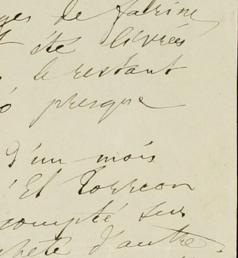 de farine
été livrées
le restant
presque
d'un mois
El Torreon
compté sur
d'autre